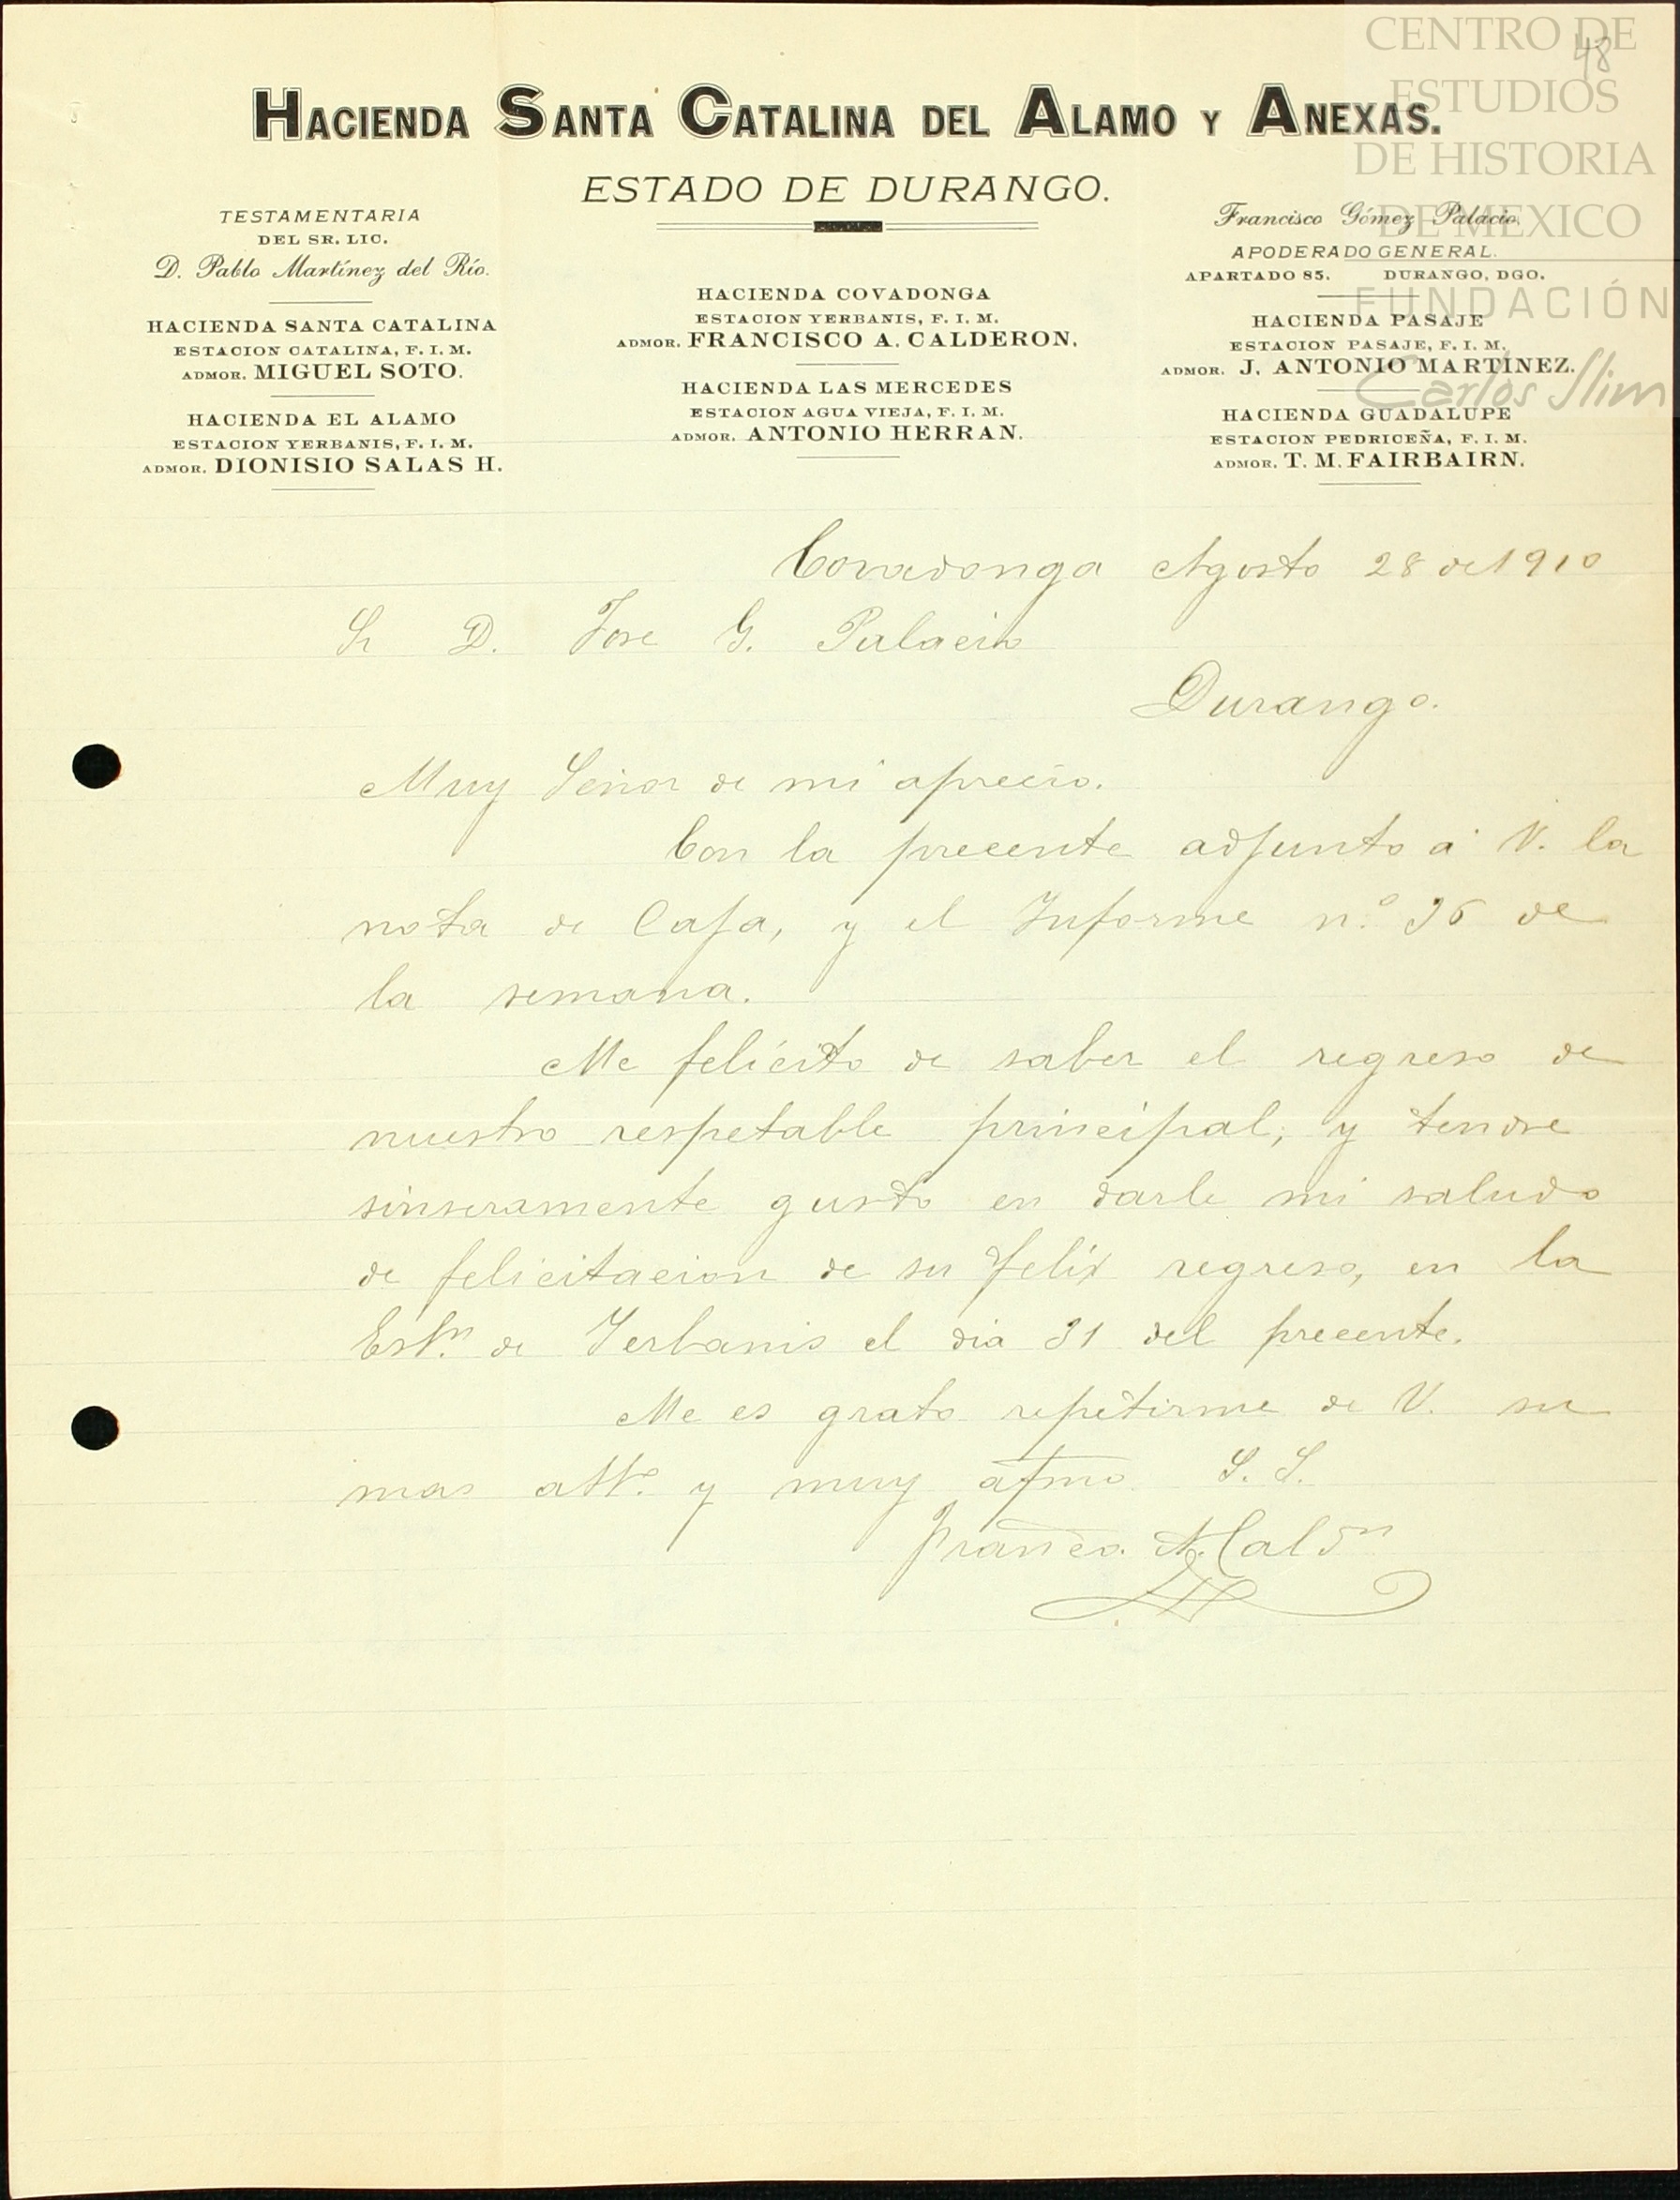 CENTRO DE
ESTUDIOS
DE HISTORIA
DE MEXICO
FUNDACIÓN
Carlos Slim
48
HACIENDA SANTA CATALINA DEL ALAMO Y ANEXAS.
ESTADO DE DURANGO.
TESTAMENTARIA
DEL SR. LIC.
D. Pablo Martínez del Río.
HACIENDA SANTA CATALINA
ESTACION CATALINA, F. I. M.
ADMOR. MIGUEL SOTO.
HACIENDA EL ALAMO
ESTACION YERBANIS, F. I. M.
ADMOR. DIONISIO SALAS H.
HACIENDA COVADONGA
ESTACION YERBANIS, F. I. M.
ADMOR. FRANCISCO A. CALDERON.
HACIENDA LAS MERCEDES
ESTACION AGUA VIEJA, F. I. M.
ADMOR. ANTONIO HERRAN.
Francisco Gómez Palacio.
APODERADO GENERAL.
APARTADO 85. DURANGO, DGO.
HACIENDA PASAJE
ESTACION PASAJE, F. I. M.
ADMOR. J. ANTONIO MARTINEZ.
HACIENDA GUADALUPE
ESTACION PEDRICEÑA, F. I. M.
ADMOR. T. M. FAIRBAIRN.
Covadonga Agosto 28 de 1910
Sr D. Jose G. Palacio
Durango.
Muy Señor de mi aprecio.
Con la precente adjunto á V. la
nota de Caja, y el Informe n.º 36 de
la semana.
Me felicito de saber el regreso de
nuestro respetable principal, y tendre
sinseramente gusto en darle mi saludo
de felicitacion de su felix regreso, en la
Estn. de Yerbanis el dia 31 del precente.
Me es grato repetirme de V. su
mas atto. y muy afmo S. S.
Franco. A. Caldn